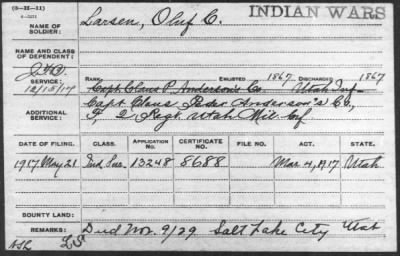 (3—H—11)
NAME OF SOLDIER: Larsen, Oluf C. INDIAN WARS
NAME AND CLASS OF DEPENDENT:
SERVICE: 12/15/17 RANK ENLISTED 1867 DISCHARGED 1867
Capt. Claus P. Anderson's Co. Utah Inf
ADDITIONAL SERVICE: Capt. Claus Peter Anderson's Co.,
F, 2 Regt. Utah Mil. Inf
DATE OF FILING. CLASS. APPLICATION NO. CERTIFICATE NO. FILE NO. ACT. STATE.
1917 May 21 Ind. Sur. 13248 8688 Mar. 4, 1917 Utah
BOUNTY LAND:
REMARKS: Died Nov. 9/29 Salt Lake City Utah